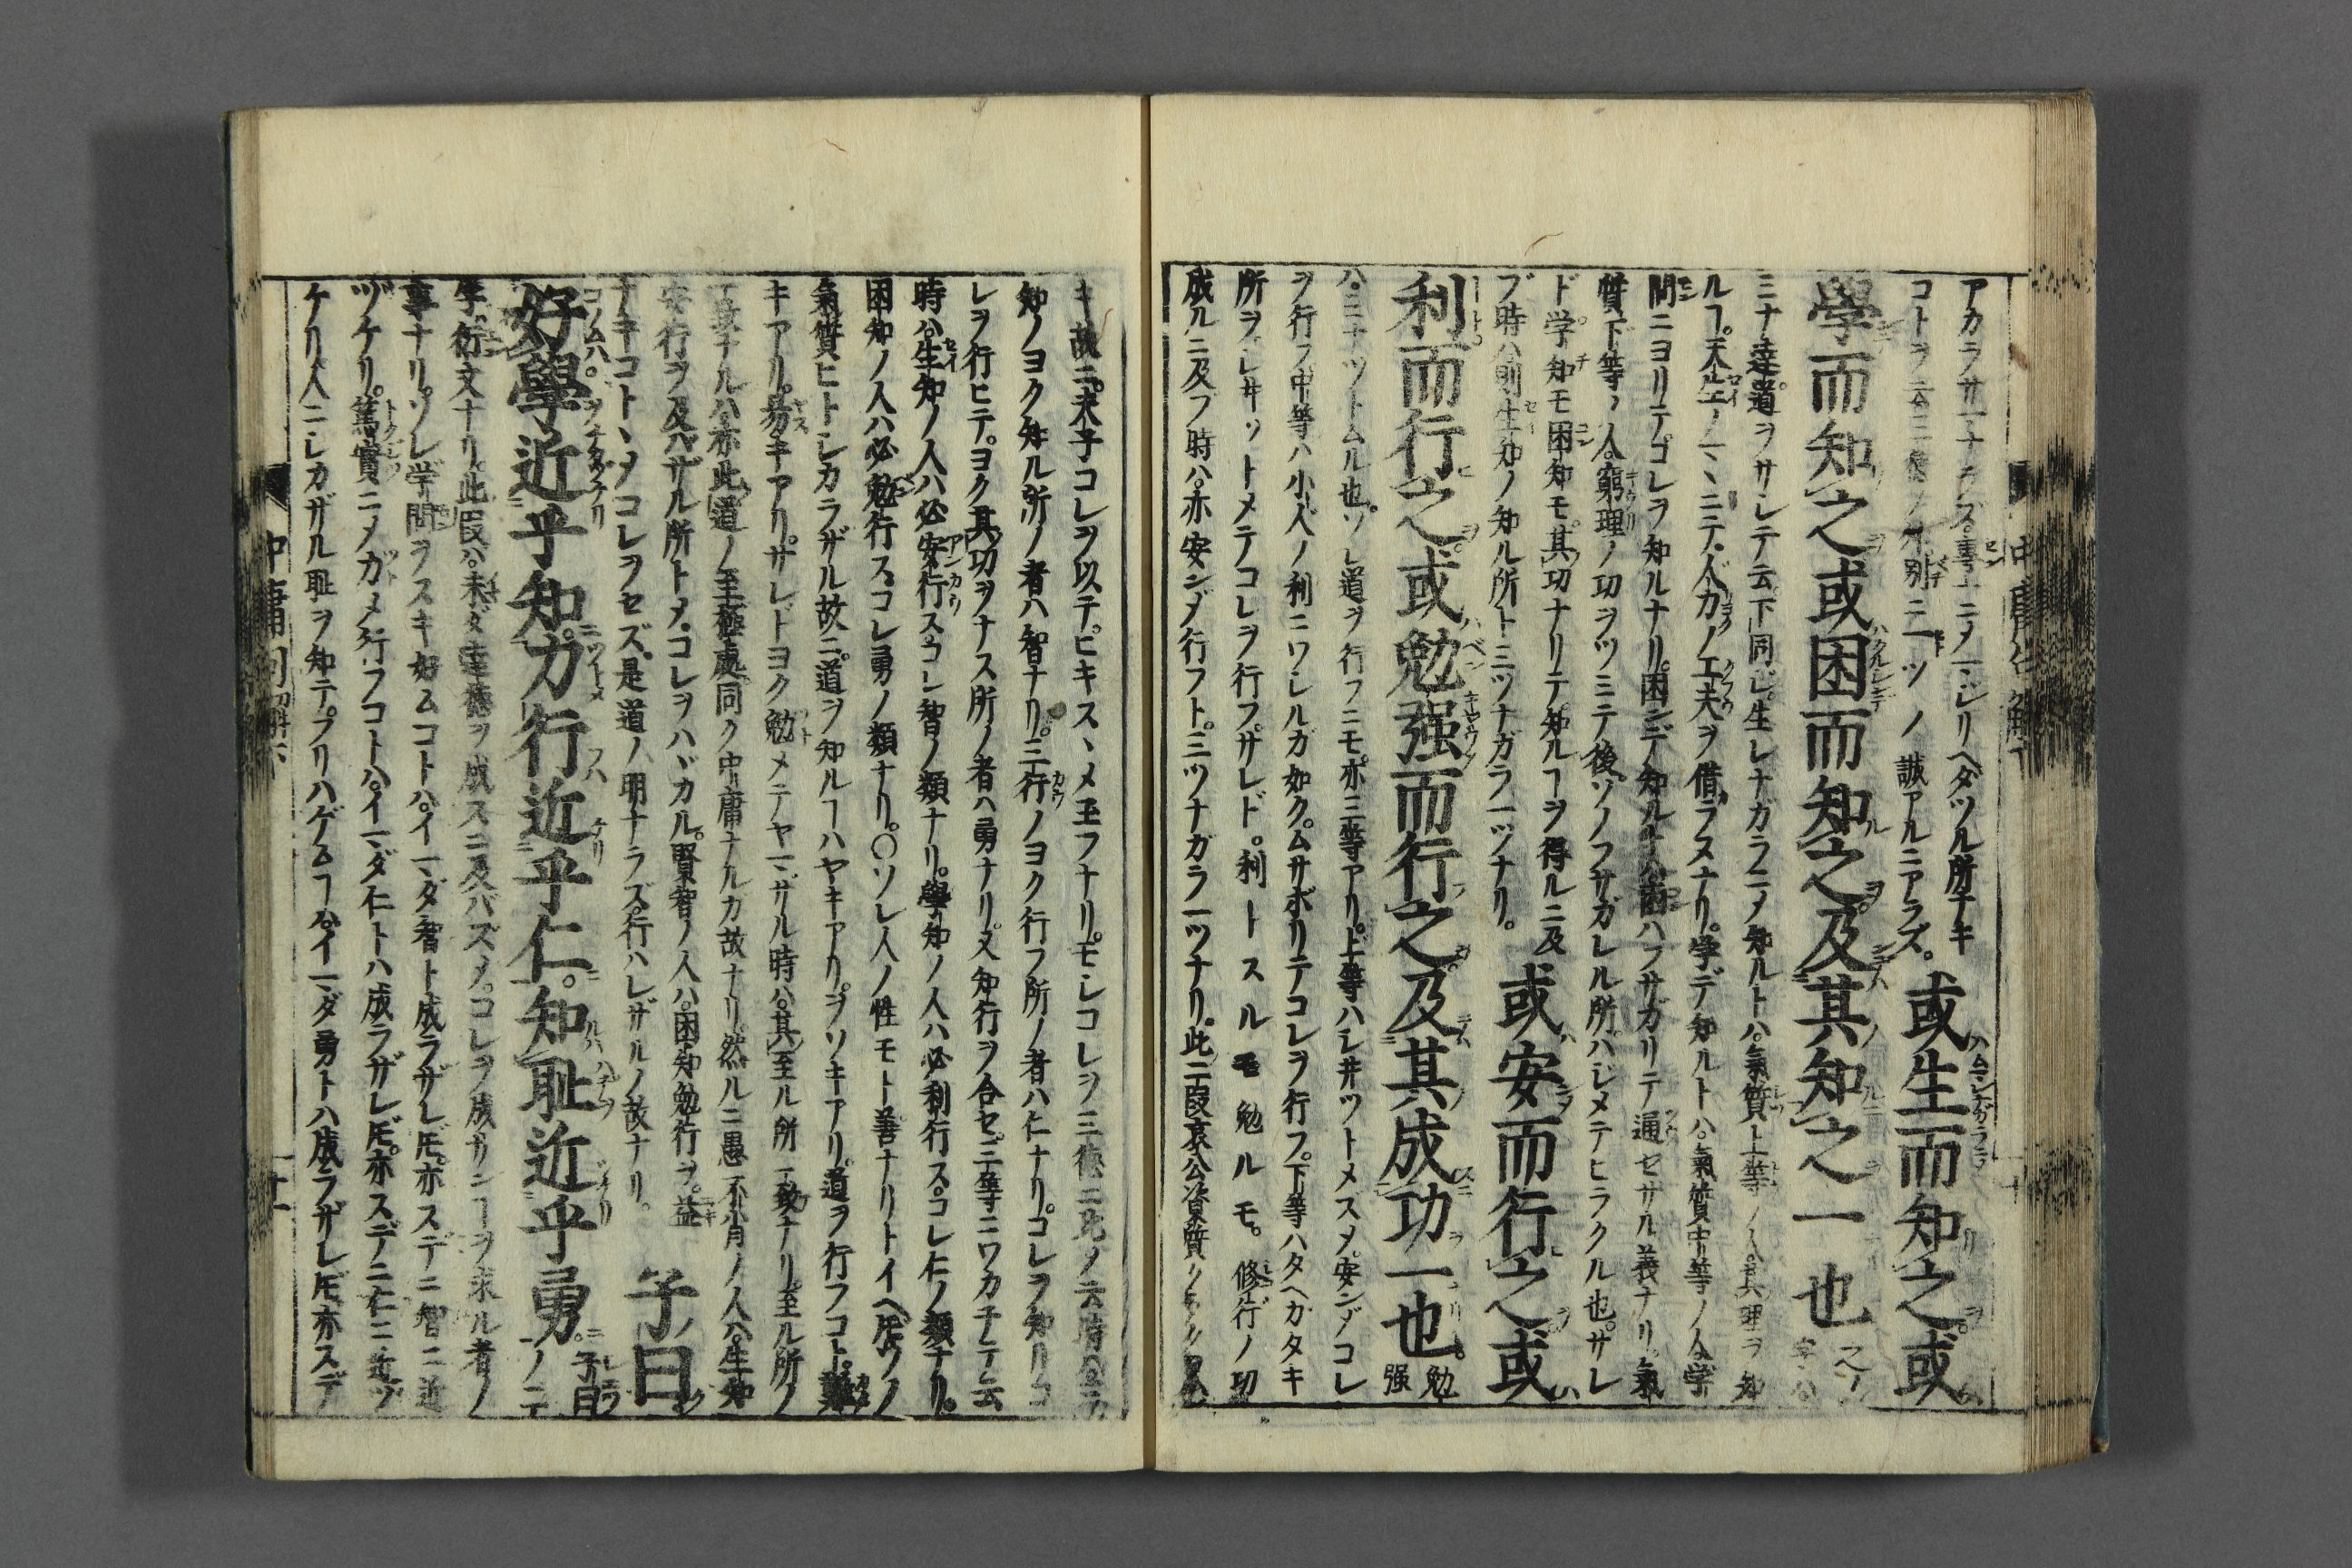 アカラサマナラズ。專一ニメマジリヘダツル所ナキ
コトヲ云三德ノ外別ニ一ツノ誠アルニアラズ。或生而知之或
學而知之或困而知之及其知之一也
ミナ達道ヲサシテ云下同ジ。生レナガラニメ知ルトハ。氣質上等ノ人。其理ヲ知
ルヿ。天生ノマヽニテ。人力ノ工夫ヲ借ラヌナリ。学デ知ルトハ。氣質中等ノ人。学
問ニヨリテコレヲ知ルナリ。困ンデ知ルトハ。困ハフサガリテ通ゼザル義ナリ。氣
質下等ノ人。窮理ノ功ヲツミテ後。ソノフサガレル所ハジメテヒラクル也。サレ
ド学知モ困知モ。其功ナリテ知ルヿヲ得ルニ及
ブ時ハ則生知ノ知ル所ト三ツナガラ一ツナリ。或安而行之或
利而行之或勉强而行之及其成功一也。勉强
ハ。ミナツトムル也。ソレ道ヲ行フニモ。亦三等アリ。上等ハシヰツトメズメ。安ンジコレ
ヲ行フ中等ハ小人ノ利ニワシルガ如ク。ムサボリテコレヲ行フ。下等ハタヘガタキ
所ヲ。シヰツトメテコレヲ行フ。サレド。利トスルモ勉ルモ。修行ノ功
成ルニ及ブ時ハ。亦安ンジ行フト。三ツナガラ一ツナリ。此二段哀公資質
キ故ニ。夫子コレヲ以テ。ヒキスヽメ玉フナリ。モシコレヲ三德ニ
知ノヨク知ル所ノ者ハ智ナリ。三行ノヨク行フ所ノ者ハ仁ナリ。コレヲ知リコ
レヲ行ヒテ。ヨク其功ヲナス所ノ者ハ勇ナリ。又知行ヲ合セ。三等ニワカチテ云
時ハ。生知ノ人ハ必安行ス。コレ智ノ類ナリ。學知ノ人ハ必利行ス。コレ仁ノ類ナリ。
困知ノ人ハ必勉行ス。コレ勇ノ類ナリ。〇ソレ人ノ性モト善ナリトイヘ𪜈。ソノ
氣質ヒトシカラザル故ニ。道ヲ知ルヿハヤキアリ。ヲソキアリ。道ヲ行フコト。難
キアリ。易キアリ。サレドヨク勉メテヤマザル時ハ。其至ル所一致ナリ。至ル所ノ
一致ナルハ亦此道ノ至極處同ク中庸ナルガ故ナリ。然ルニ愚不肖ノ人ハ。生知
安行ヲ及バザル所トメ。コレヲハヾカル。賢智ノ人ハ。困知勉行ヲ。益
ナキコトヽメコレヲセズ。是道ノ明ナラズ。行ハレザルノ故ナリ。子曰
好學近乎知力行近乎仁。知恥近乎勇。子曰ノ二
字。衍文ナリ。此段ハ。未ダ達德ヲ成スニ及バズメ。コレヲ成サンヿヲ求ル者ノ
事ナリ。ソレ学問ヲスキ好ムコトハ。イマダ智ト成ラザレ𪜈。亦スデニ智ニ近
ヅケリ。篤實ニメガメ行フコトハ。イマダ仁トハ成ラザレ𪜈。亦スデニ仁ニ近ヅ
ケリ人ニシカザル恥ヲ知テ。フリハゲムヿハ。イマダ勇トハ成ラザレ𪜈亦スデ